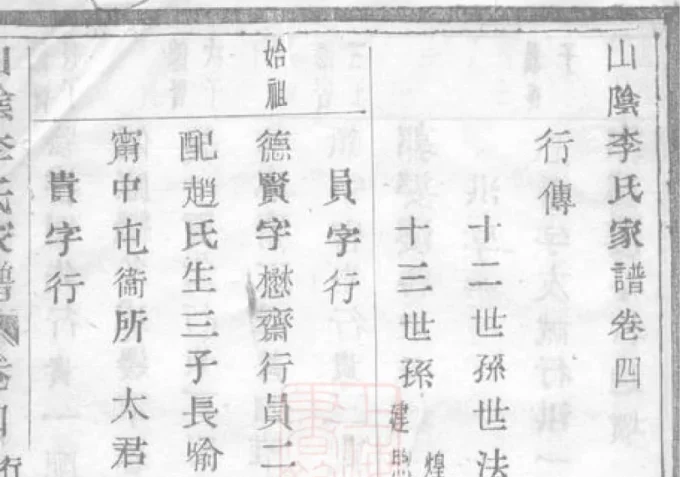 山陰李氏家譜卷四
行傳
十二世孫世法
十三世孫建
煌
員字行
始祖
德賢字懋齋行員二
配趙氏生三子長喻
甯中屯衞所 太君
貴字行